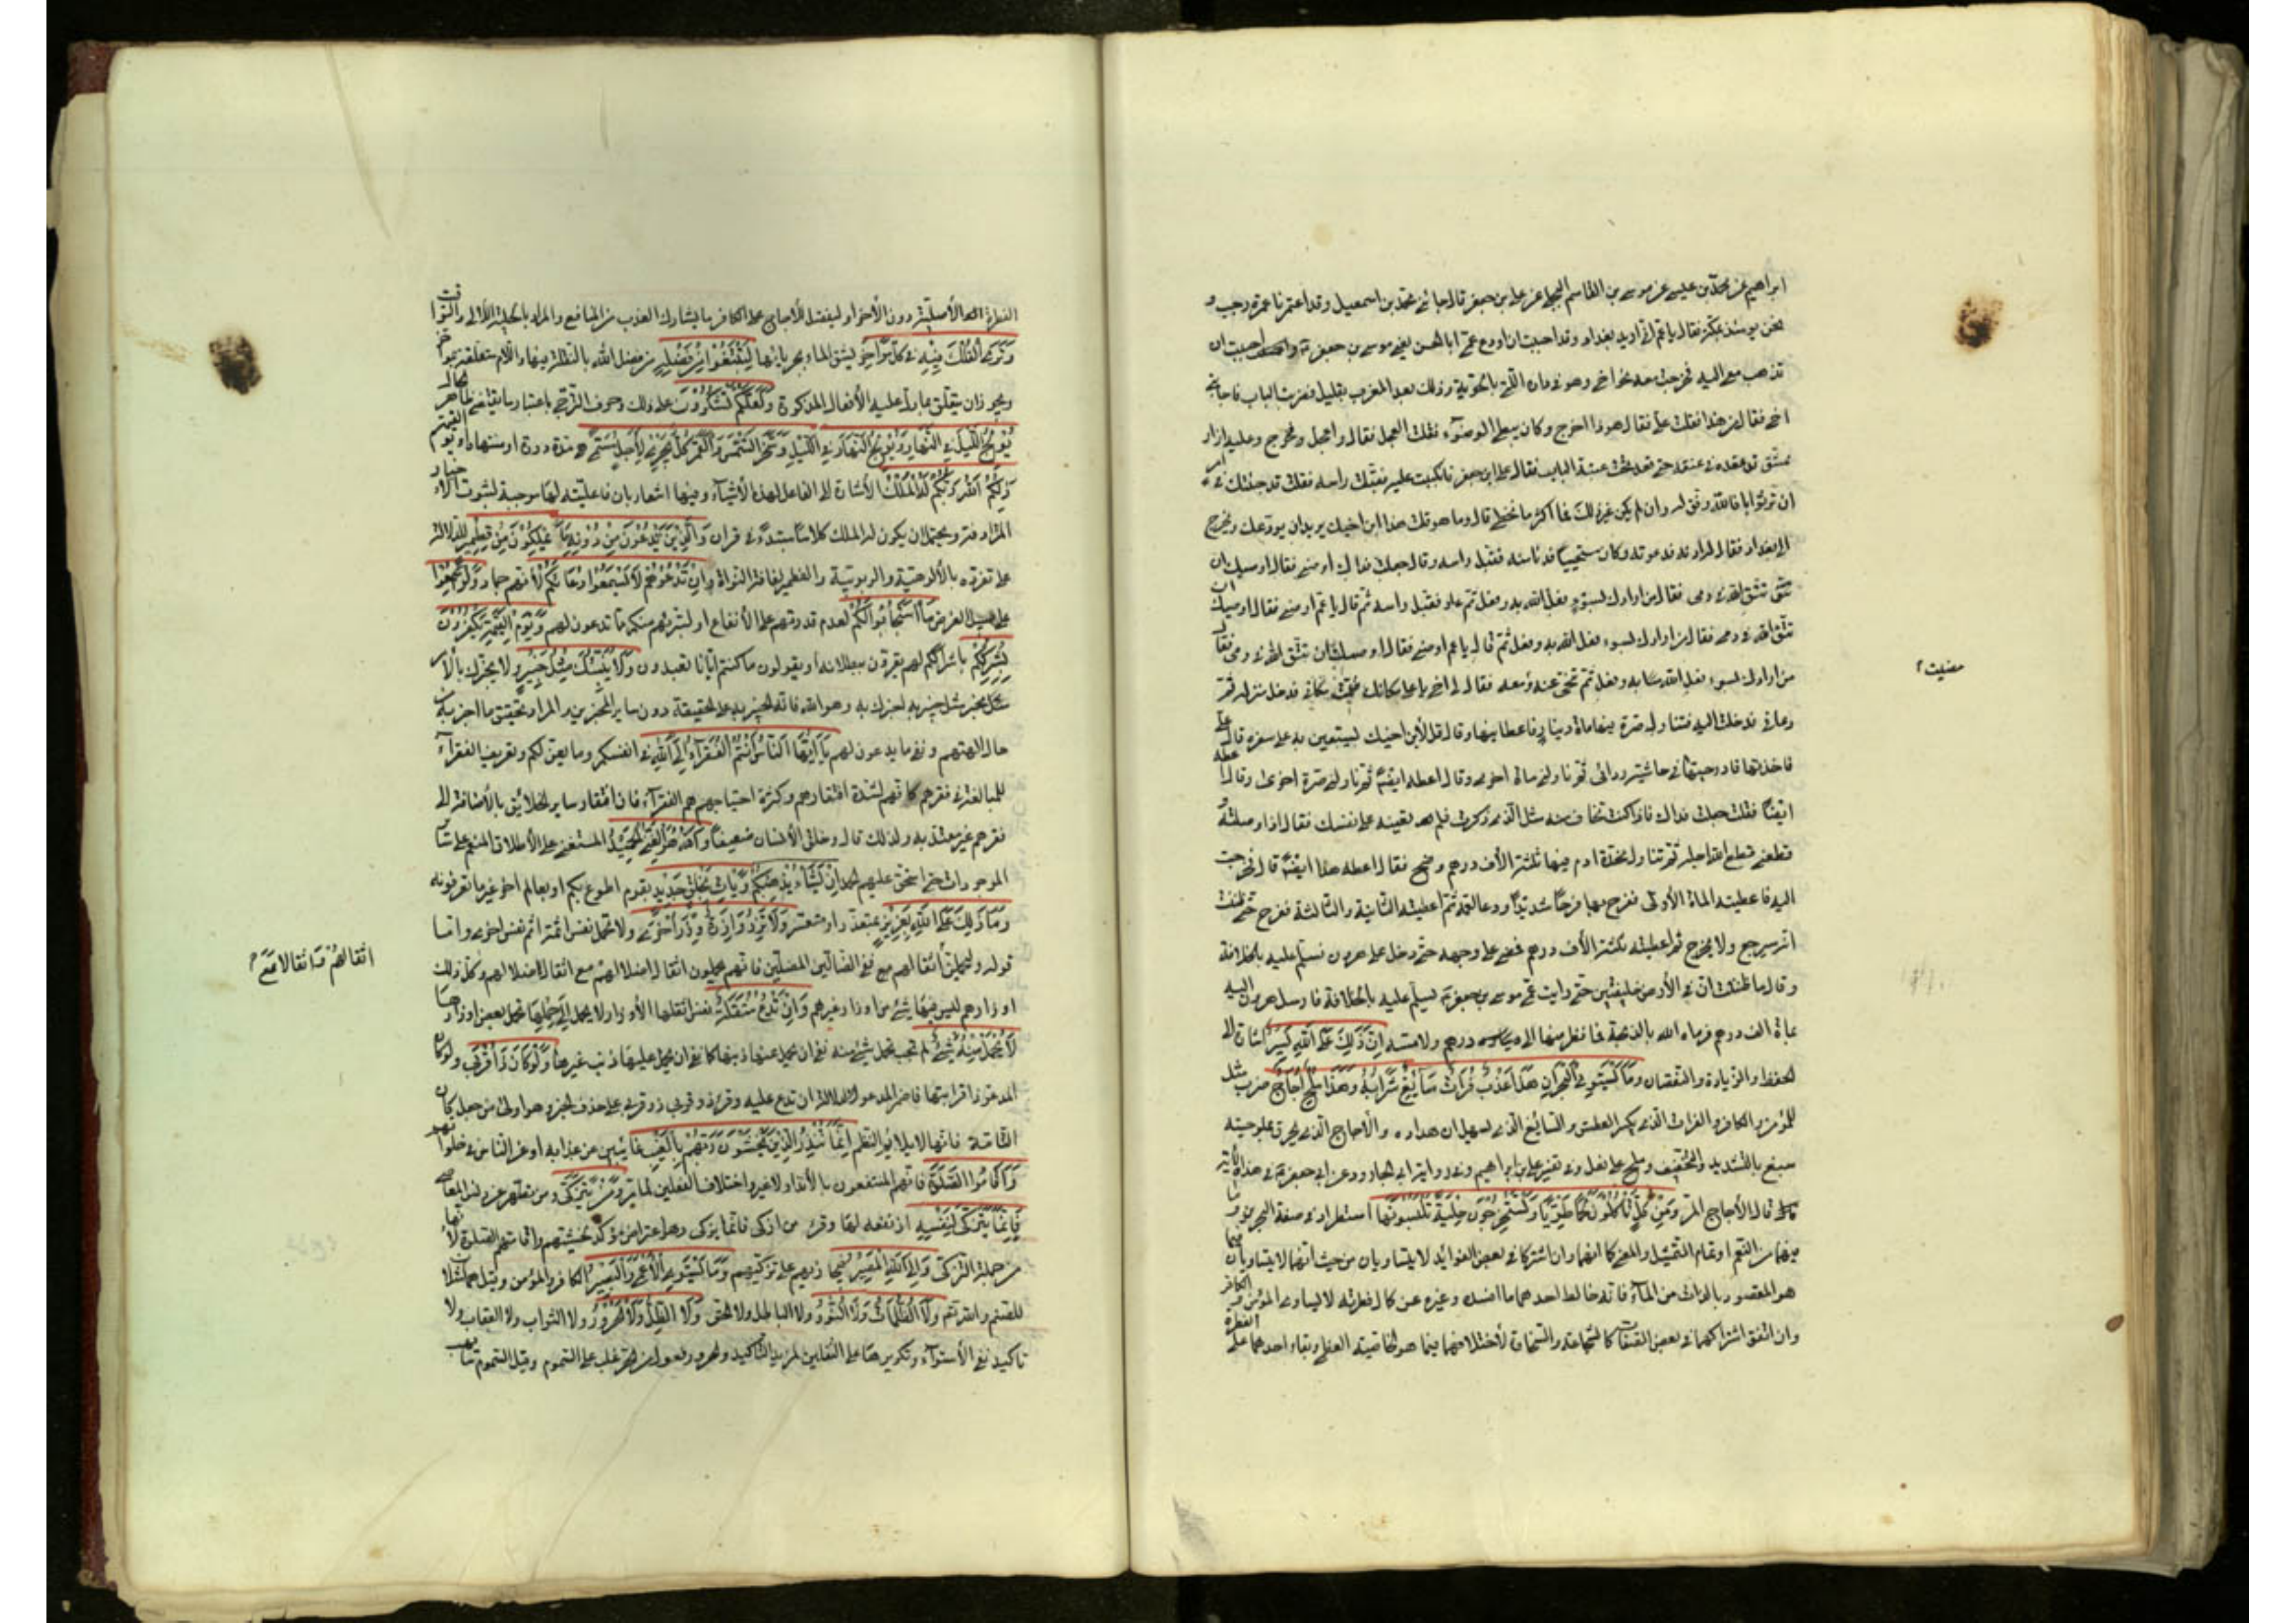 ابراهيم عن محمد بن عيسى عن موسى بن القاسم البجلي عن علي بن جعفر قال جاءني محمد بن اسمعيل وقد اعتمرنا عمرة رجب و
نحن يومئذ بمكة فقال يا عم اني اريد بغداد وقد احببت ان اودع عمي ابا الحسن يعني موسى بن جعفر واحببت ان
تذهب معي اليه فخرجت معه نحو اخي وهو في داره التي بالحوبة وذلك بعد المغرب بقليل فضربت الباب فاجابني
اخي فقال من هذا فقلت علي فقال هوذا اخرج وكان بطيء الوضوء فقلت العجل فقال واعجل وخرج وعليه ازار
ممشق قد عقده في عنقه حتى قعد تحت عتبة الباب فقال علي بن جعفر فانكببت عليه فقبلت راسه وقلت قد جئتك في امر
ان تره صوابا فالله وفق له وان يكن غير ذلك فما اكثر ما نخطي قال وما هو قلت هذا ابن اخيك يريد ان يودعك ويخرج
الى بغداد فقال لي ادعه فدعوته وكان متنحيا فدنا منه فقبل راسه وقال جعلت فداك اوصني فقال اوصيك ان
تتقي الله في دمي فقال من ارادك بسوء فعل الله به وفعل ثم عاد فقبل راسه ثم قال يا عم اوصني فقال اوصيك ان
تتقي الله في دمي فقال من ارادك بسوء فعل الله به وفعل ثم قال يا عم اوصني فقال اوصيك ان تتقي الله في دمي فقال
من ارادك بسوء فعل الله به وفعل ثم تنحى عنه ومضيت معه فقال لي اخي يا علي مكانك فقمت مكاني فدخل منزله ثم
دعاني فدخلت اليه فتناول صرة فيها مائة دينار فاعطانيها وقال قل لابن اخيك يستعين به على سفره قال علي
فاخذتها فادرجتها في حاشية ردائي ثم ناولني مائة اخرى وقال اعطه ايضا ثم ناولني صرة اخرى وقال اعطه
ايضا فقلت جعلت فداك فاذا كنت تخاف منه مثل الذي ذكرت فلم تعينه على نفسك فقال اذا وصلته و
قطعني قطع الله اجله ثم تناول مخدة ادم فيها ثلثة الاف درهم وضح فقال اعطه هذا ايضا قال فخرجت
اليه فاعطيته المائة الاولى ففرح بها فرحا شديدا ودعا لعمه ثم اعطيته الثانية والثالثة ففرح حتى ظننت
انه سيرجع ولا يخرج ثم اعطيته ثلثة الاف درهم فمضى على وجهه حتى دخل على هرون فسلم عليه بالخلافة
وقال ما ظننت ان في الارض خليفتين حتى رايت عمي موسى بن جعفر يسلم عليه بالخلافة فارسل هرون اليه
بمائة الف درهم فرماه الله بالذبحة فما نظر منها الى درهم ولا مسه إن ذلك على الله يسير اشارة الى
الحفظ والزيادة والنقصان وما يستوي البحران هذا عذب فرات سائغ شرابه وهذا ملح أجاج ضرب مثل
للمؤمن والكافر والفرات الذي يكسر العطش والسائغ الذي يسهل انحداره والاجاج الذي يحرق بملوحته
سيغ بالتشديد والتخفيف وملح على فعل وفي تفسير علي بن ابراهيم وفي رواية ابي الجارود عن ابي جعفر في هذه الاية
قال الاجاج المر ومن كل تأكلون لحما طريا وتستخرجون حلية تلبسونها استطراد في صفة البحرين وما
فيهما من النعم او تمام التمثيل والمعنى كما انهما وان اشتركا في بعض الفوائد لا يتساويان من حيث انهما لا يتساويان فيما
هو المقصود بالذات من الماء فانه خالط احدهما ما افسده وغيره عن كمال فطرته لا يساوي المؤمن والكافر
وان اتفق اشتراكهما في بعض الصفات كالشجاعة والسخاوة لاختلافهما فيما هو الخاصية العظمى وبقاء احدهما على الفطرة
مضيت
الاصلية دون الاخر او ليفضل للاجاج على الكافر بما يشارك العذب من المنافع والمراد بالحلية اللآلي واليواقيت
وترى الفلك فيه في كل مواخر يشق الماء بجريانها لتبتغوا من فضله من فضل الله بالنقلة فيها واللام متعلقة بمواخر
ويجوز ان يتعلق بما دل عليه الافعال المذكورة ولعلكم تشكرون على ذلك وحرف الترجي باعتبار ما يقتضيه ظاهر الحال
يولج الليل في النهار ويولج النهار في الليل وسخر الشمس والقمر كل يجري لأجل مسمى هي مدة دوره او منتهاه او يوم القيمة
ذلكم الله ربكم له الملك الاشارة الى الفاعل لهذه الاشياء وفيها اشعار بان فاعليته لها موجبة لثبوت الاخبار
المترادفة ويحتمل ان يكون له الملك كلاما مبتدأ في قران والذين تدعون من دونه ما يملكون من قطمير للدلالة
على تفرده بالالوهية والربوبية والقطمير لفافة النواة وإن تدعوهم لا يسمعوا دعاءكم لانهم جماد ولو سمعوا
على سبيل الفرض ما استجابوا لكم لعدم قدرتهم على الانفاع او لتبريهم منكم مما تدعون لهم ويوم القيمة يكفرون
بشرككم باشراككم لهم يقرون ببطلانه او يقولون ما كنتم ايانا تعبدون ولا ينبئك مثل خبير ولا يخبرك بالامر
مثل مخبر مثل خبير به اخبرك به وهو الله فانه الخبير به على الحقيقة دون ساير المخبرين والمراد تحقيق ما اخبر به من
حال الهتهم ونفي ما يدعون لهم يا أيها الناس أنتم الفقراء إلى الله في انفسكم وما يعن لكم وتعريف الفقراء
للمبالغة في فقرهم كانهم لشدة افتقارهم وكثرة احتياجهم هم الفقراء فان افتقار ساير الخلائق بالاضافة الى
فقرهم غير معتد به ولذلك قال وخلق الانسان ضعيفا والله هو الغني الحميد المستغني على الاطلاق المنعم على ساير
الموجودات حتى استحق عليهم الحمد إن يشأ يذهبكم ويأت بخلق جديد بقوم اطوع منكم او بعالم اخر غير ما تعرفونه
وما ذلك على الله بعزيز بمتعذر او متعسر ولا تزر وازرة وزر أخرى ولا تحمل نفس اثمة اثم نفس اخرى واما
قوله وليحملن أثقالهم مع ففي الضالين المضلين فانهم يحملون اثقال اضلالهم مع اثقال ضلالهم وكل ذلك
اوزارهم ليس فيها شيء من اوزار غيرهم وإن تدع مثقلة نفس اثقلها الاوزار إلى حملها تحمل بعض اوزارها
لا يحمل منه شيء لم تجب بحمل شيء منه نفى ان يحمل عنها ذنبها كما نفى ان يحمل عليها ذنب غيرها ولو كان ذا قربى ولو كان
المدعو ذا قرابتها فاضمر المدعو لدلالة ان تدع عليه وقرئ ذو قربى على حذف الخبر وهو اولى من جعل كان
التامة فانها لا يلايم النظم إنما تنذر الذين يخشون ربهم بالغيب غائبين عن عذابه او عن الناس في خلواتهم
وأقاموا الصلوة فانهم المنتفعون بالانذار لا غير واختلاف الفعلين لما مر ومن تزكى ومن تطهر عن دنس المعاصي
فإنما يتزكى لنفسه اذ نفعه لها وقرئ من ازكى فانما يزكى وهو اعتراض مؤكد لخشيتهم واقامتهم الصلوة لانها
من جملة التزكي وإلى الله المصير فيجازيهم على تزكيهم وما يستوي الأعمى والبصير الكافر والمؤمن وقيل هما مثلان
للصنم والله تم ولا الظلمات ولا النور ولا الباطل ولا الحق ولا الظل ولا الحرور ولا الثواب ولا العقاب ولا
تاكيد نفي الاستواء وتكريرها على الشقين لمزيد التاكيد والحرور فعول من الحر غلب على السموم وقيل السموم
اثقالهم واثقالا مع